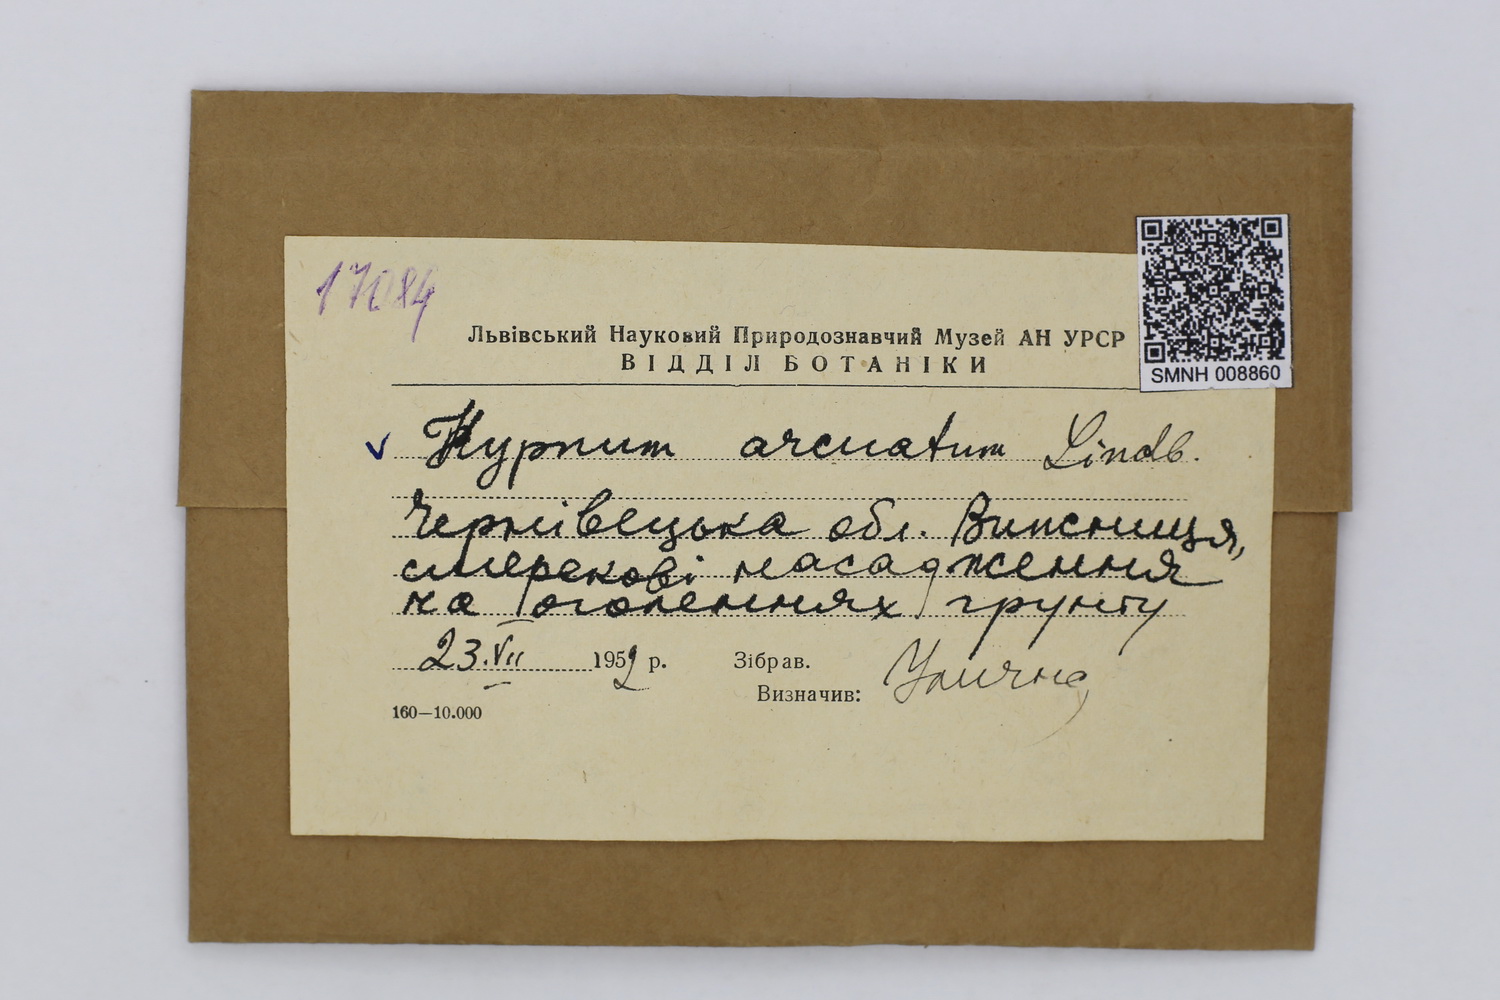 17084
Львівський Науковий Природознавчий Музей АН УРСР
ВІДДІЛ БОТАНІКИ
SMNH 008860
v Hypnum arcuatum Lindb.
Чернівецька обл. Вижниця,
смерекові насадження
на оголеннях грунту
23.VII 1952 р. Зібрав.
Визначив: Улична
160—10.000